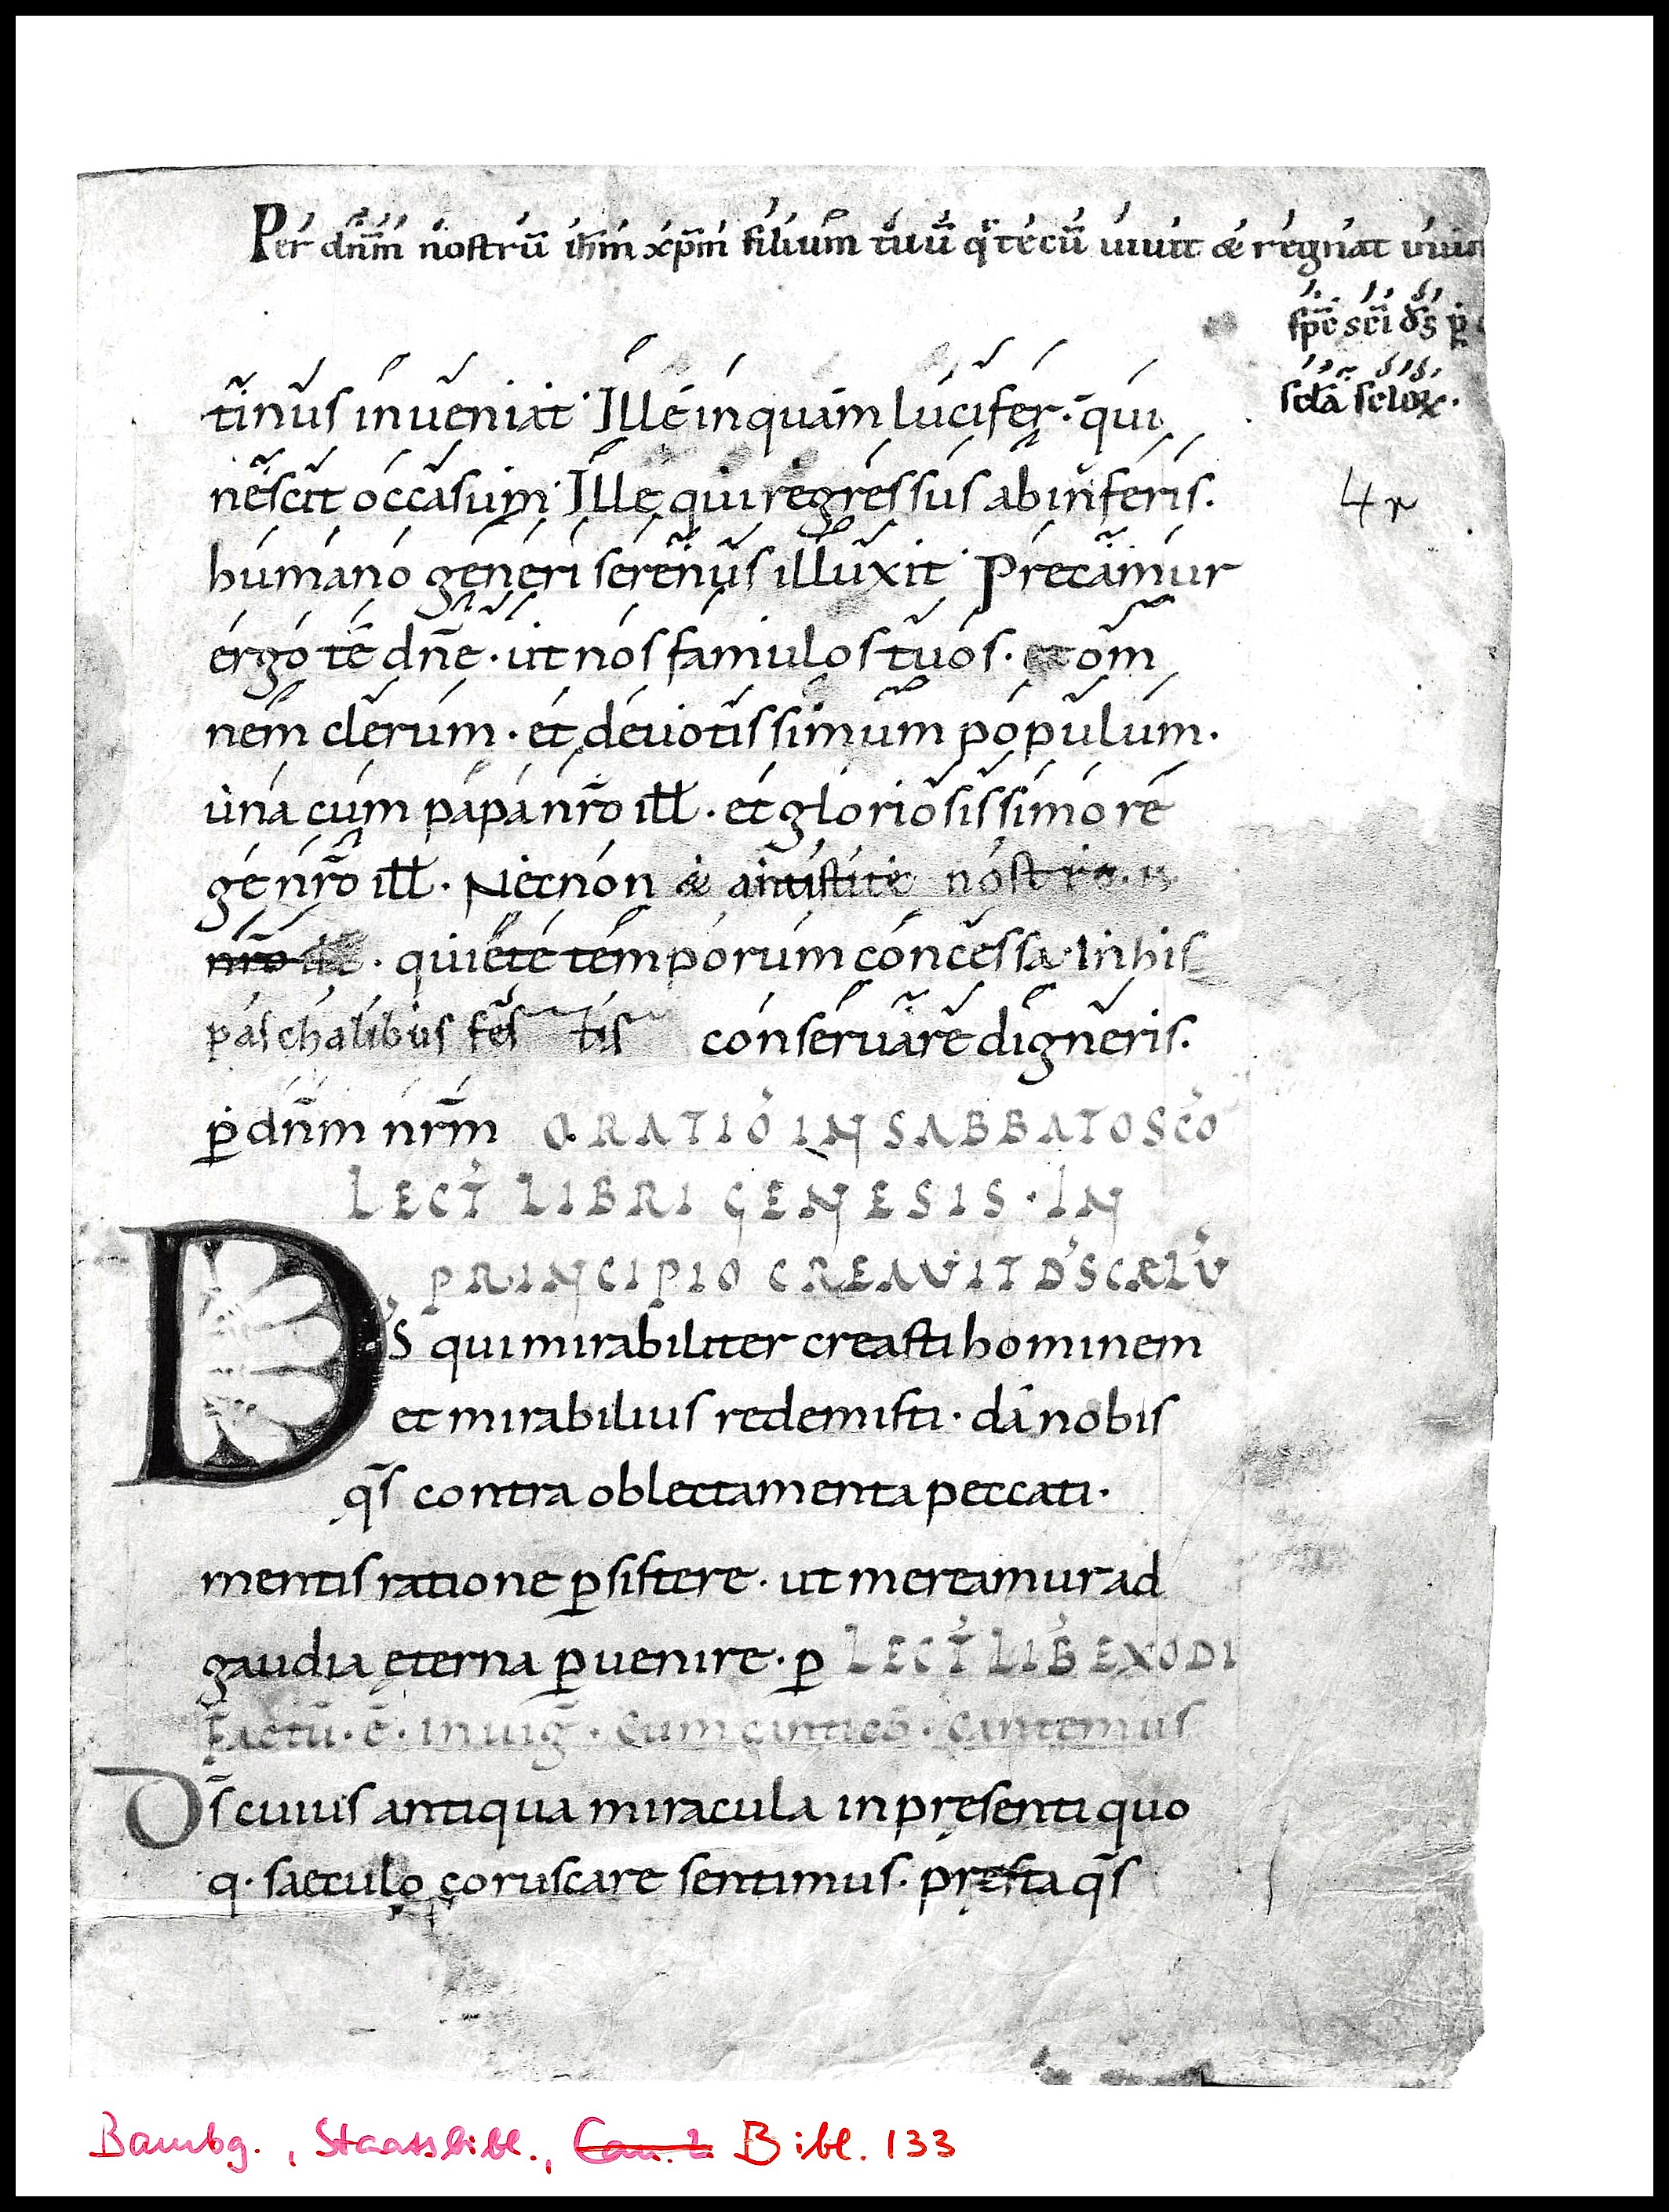 Per dn̄m nostrū ih̄m xp̄m filium tuū q' tecū uiuit & regnat
sp̄c sc̄i d̄s p̱
scl̄a sclo&#42813;.
tinus inueniat· Ille inquam lucifer. qui
nescit occasum· Ille qui regressus ab inferis.
4
humano generi serenus illuxit· Precamur
ergo te dn̄e. ut nos famulos tuos. et om̄
nem clerum. et deuotissimum populum.
una cum papa nr̄o ill̄. et gloriosissimo re
ge nr̄o ill̄. Necnon & antistite nostro. n.
nr̄o. quiete temporum concessa. In his
paschalibus fes tis conseruare digneris.
p̱ dn̄m nr̄m ORATIO IN SABBATO SC̄O
LECT̄ LIBRI GENESIS. IN
PRINCIPIO CREAVIT D'S CÆLŪ
D'S qui mirabiliter creasti hominem
et mirabilius redemisti. da nobis
q̄s contra oblectamenta peccati.
mentis ratione p̱sistere. ut mereamur ad
gaudia ęterna p̱uenire. p̱ LECT̄ LIB̄ EXODI
Factū. ē. in uiḡ. Cum canticō. Cantemus
D̄s cuius antiqua miracula in pręsenti quo
q. saeculo coruscare sentimus. pręsta q̄s
Bambg., Staatsbibl., Can. 2 Bibl. 133